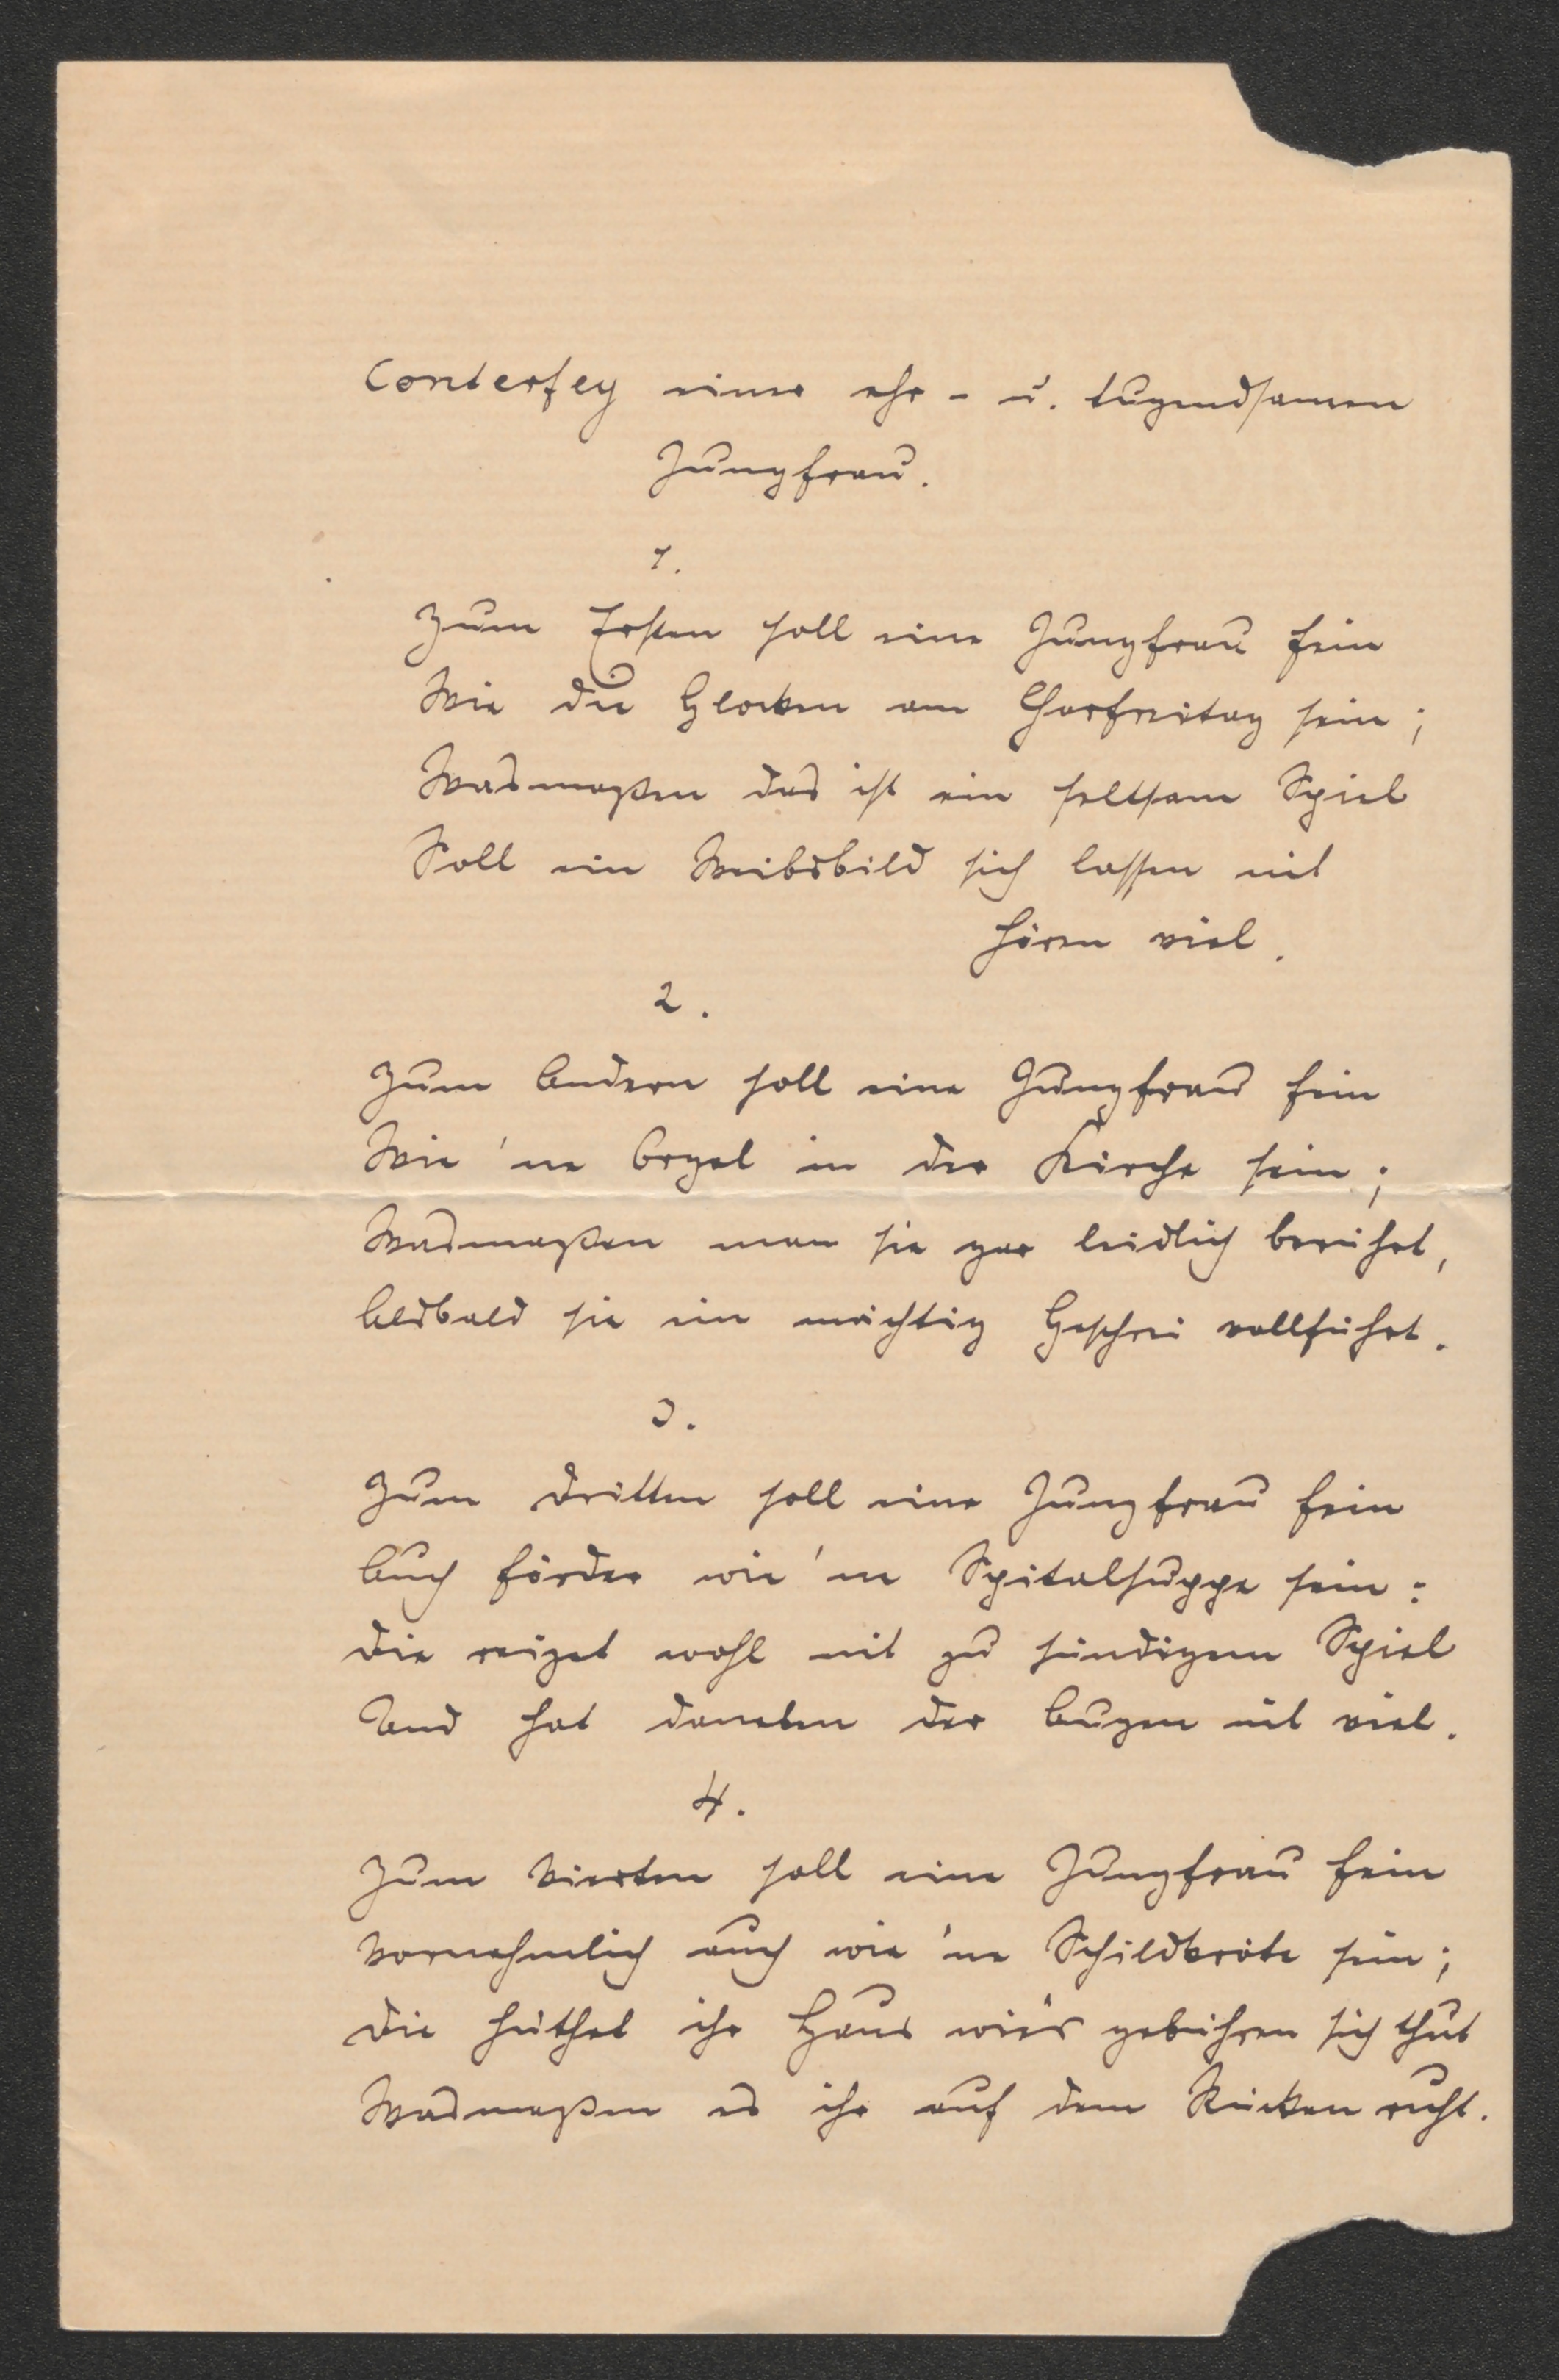 Conterfey einer ehr- u. tugendsamen
Jungfrau.
1.
Zum Ersten soll eine Jungfrau fein
Wie die Glocken am Charfreitag sein;
Wasmaßen das ist ein seltsam Spiel
Soll ein Weibsbild sich lassen nit
hören viel.
2.
Zum Andern soll eine Jungfrau fein
Wie 'ne Orgel in der Kirche sein;
Wasmaßen man sie gar leidlich berührt,
Alsbald sie ein mächtig Geschrei vollführt.
3.
Zum dritten soll eine Jungfrau fein
Auch förder wie 'ne Spitalsuppe sein:
die reizet wohl nit zu sündigem Spiel
Und hat daneben der Augen nit viel.
4.
Zum Vierten soll eine Jungfrau fein
Vornehmlich auch wie 'ne Schildkröte sein;
die hüthet ihr Haus wie's gebühren sich thut
Wasmaßen es ihr auf dem Rücken ruht.